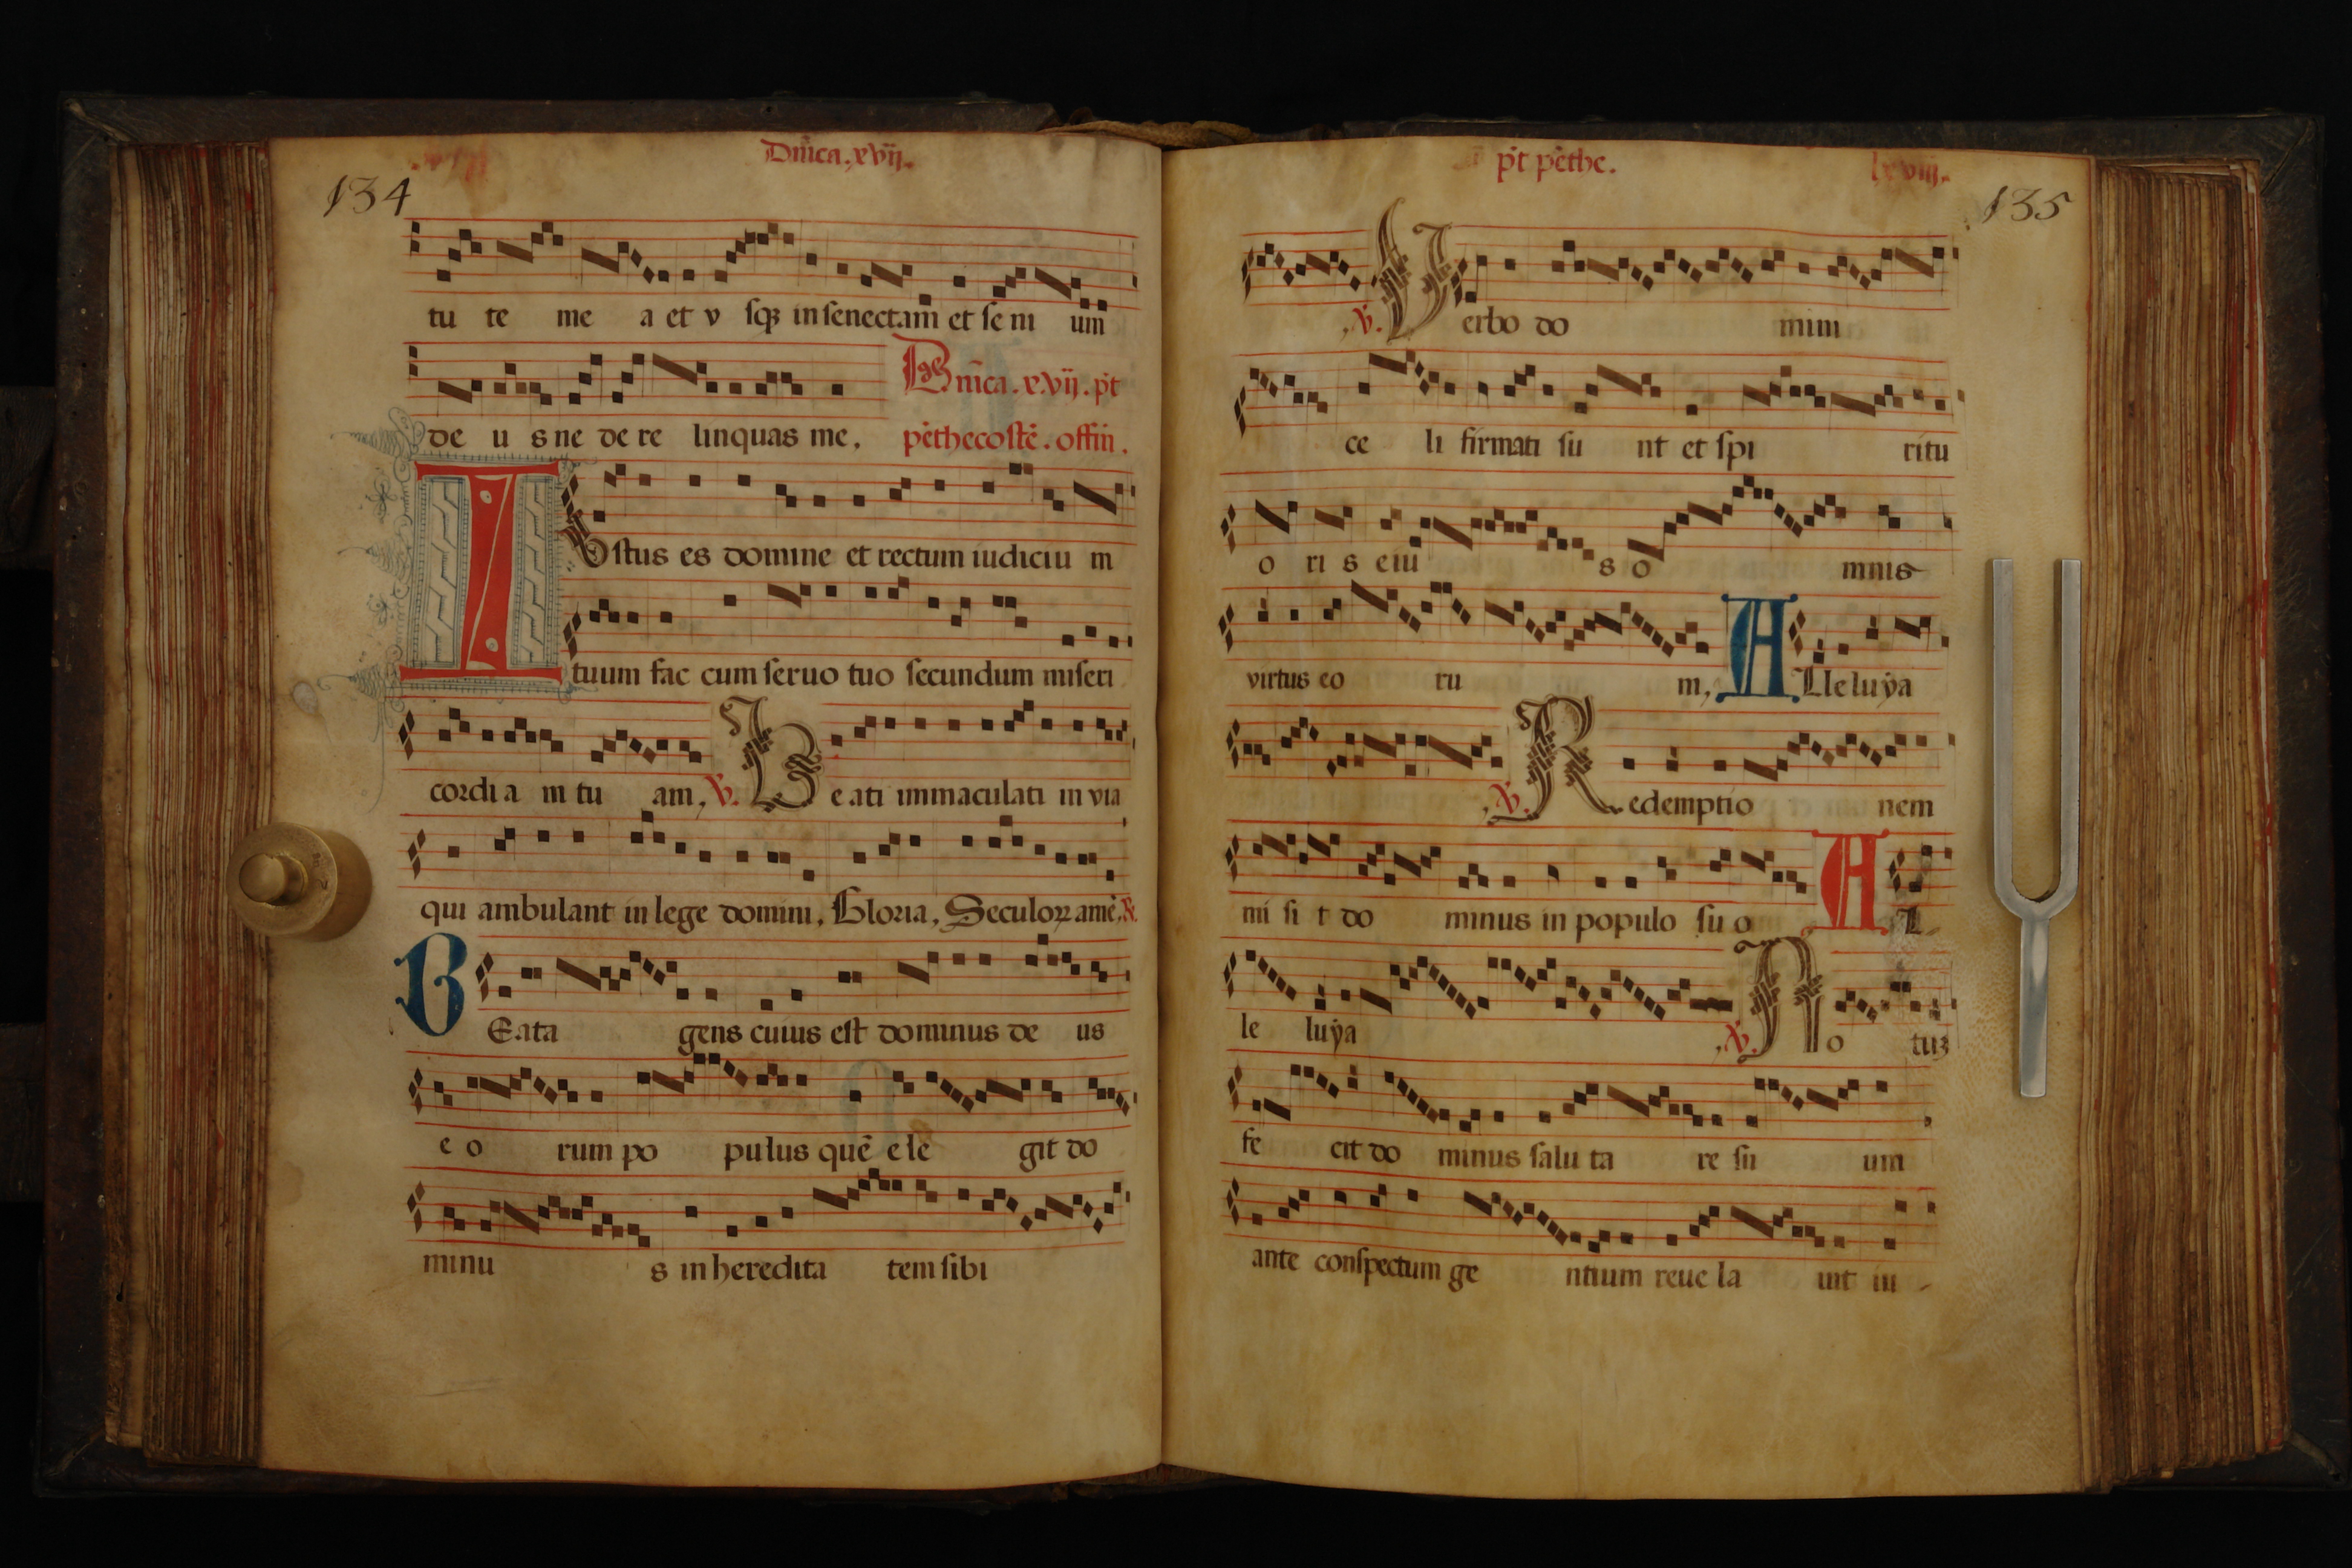 Dñica. xvij.
134
tu te me a et v sqꝫ in senectam et se ni um
de u s ne de re linquas me,
Dñica. xvij. p̄t
pēthecostē. offiń.
Iostus es domine et rectum iudiciu m
tuum fac cum seruo tuo secundum miseri
cordi a in tu am, ℣. Be ati immaculati in via
qui ambulant in lege domini, Gloria, Seculoꝝ amē, ℟.
BEata gens cuius est dominus de us
e o rum po pulus quē e le git do
minu s in heredita tem sibi
p̄t pēthe.
lxviij.
135
, ℣. Verbo do mini
ce li firmati su nt et spi ritu
o ri s eiu s o mnis
virtus eo ru m, ALleluÿa
, ℣. Redemptio nem
mi si t do minus in populo su o AL-
le luÿa , ℣. No tuꝫ
fe cit do minus salu ta re su um
ante conspectum ge ntium reue la uit iu -